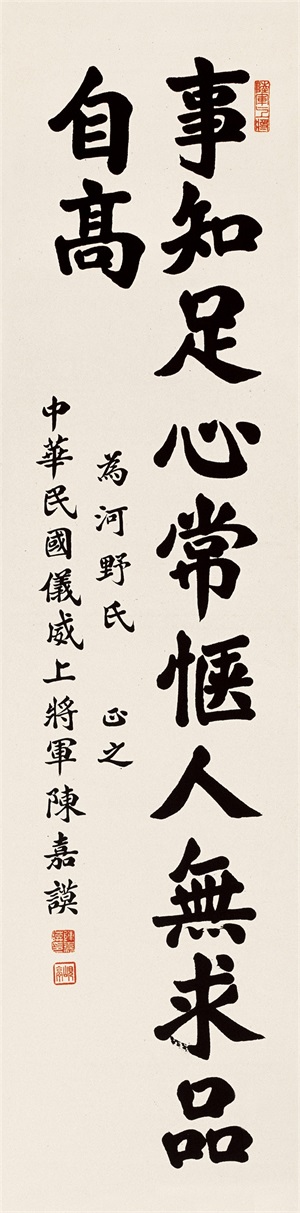 事知足心常惬人無求品
自高
為河野氏 正之
中華民國儀威上將軍陳嘉謨